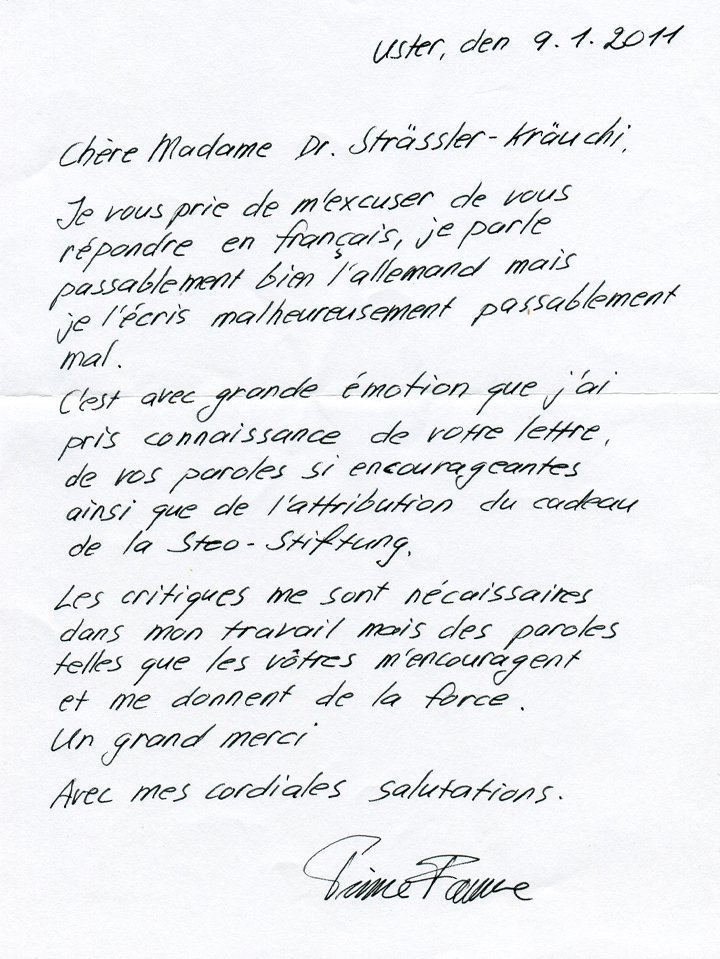 Uster, den 9.1.2011
Chère Madame Dr. Strässler-Kräuchi,
Je vous prie de m'excuser de vous
répondre en français, je parle
passablement bien l'allemand mais
je l'écris malheureusement passablement
mal.
C'est avec grande émotion que j'ai
pris connaissance de votre lettre,
de vos paroles si encourageantes
ainsi que de l'attribution du cadeau
de la Steo-Stiftung.
Les critiques me sont nécaissaires
dans mon travail mais des paroles
telles que les vôtres m'encouragent
et me donnent de la force.
Un grand merci
Avec mes cordiales salutations.